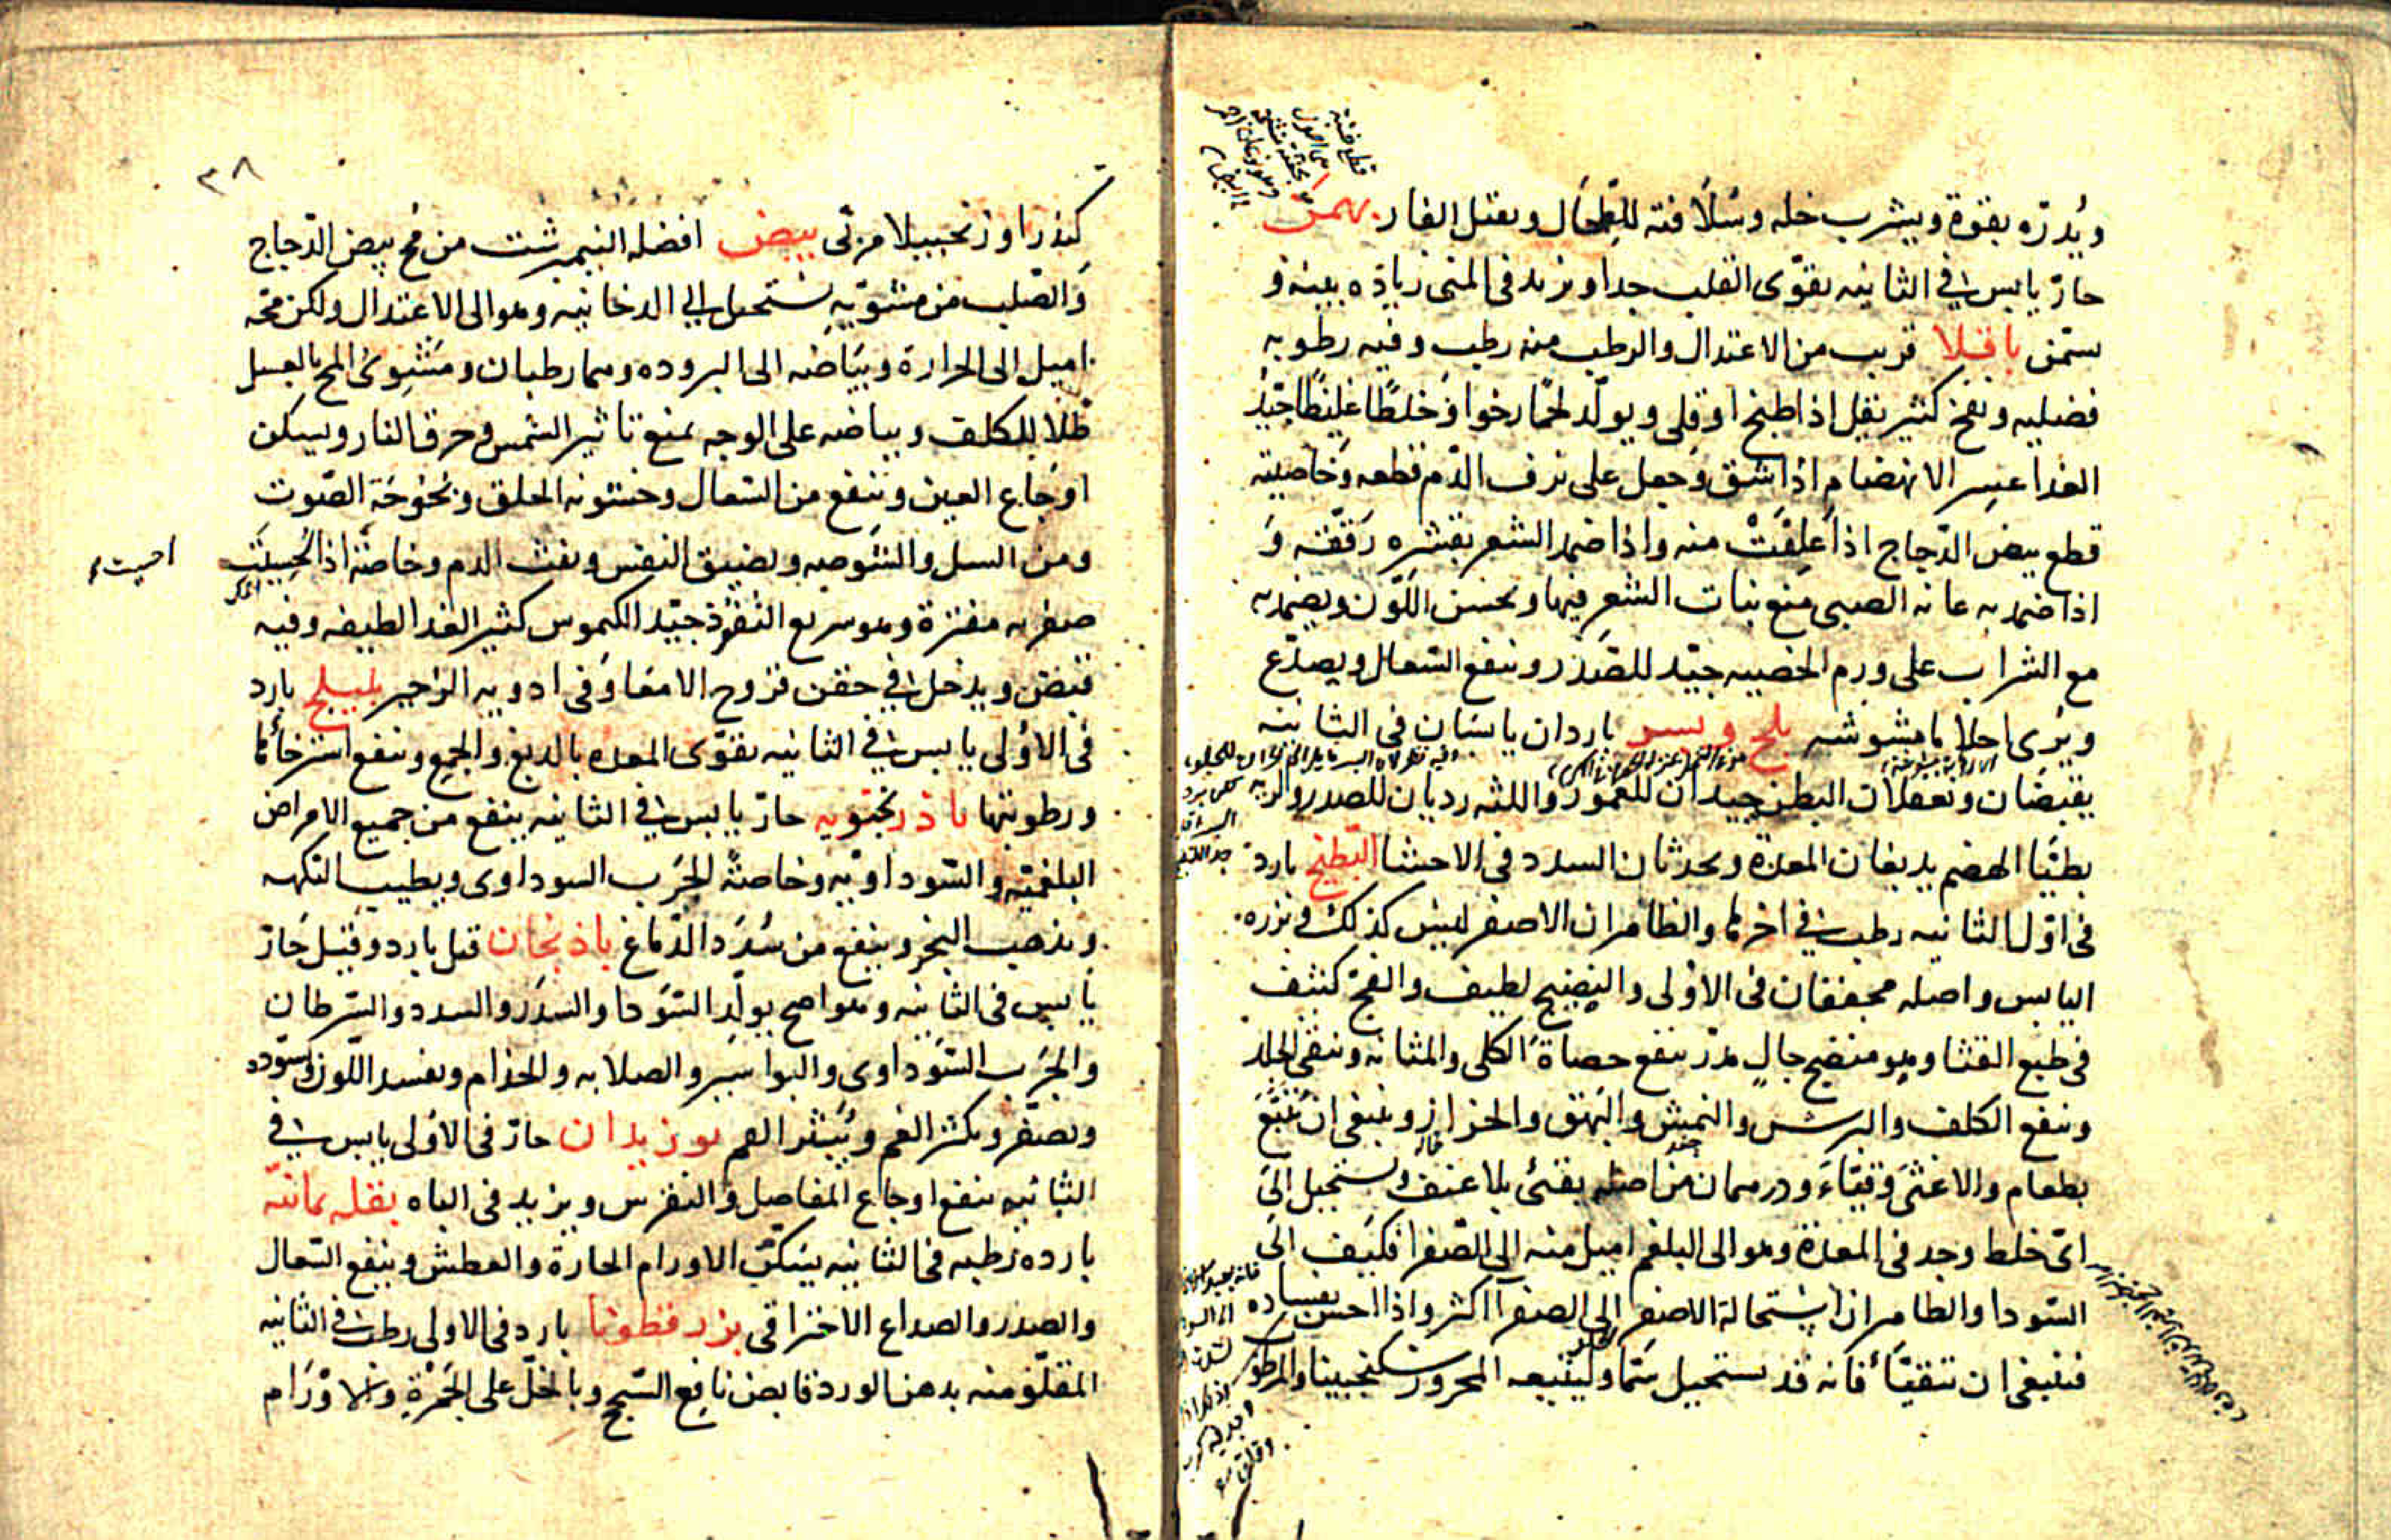 ويُدرّه بقوة ويشرب خله وسُلافته للطحال ويقتل الفار بهمن
حارّ يابس في الثانيه يقوّى القلب جدا ويزيد في المنى زيادة بينة و
يسمّن باقلا قريب من الاعتدال والرطب منه رطب وفيه رطوبه
فضليه ونفخ كثير يقل اذا طبخ او قلى ويولّد لحمًا رخوا وخلطًا غليظًا جيّد
الغذا عسر الانهضام اذا شق وجعل على نزف الدّم قطعه وخاصيته
قطع بيض الدّجاج اذا عَلِفَتْ منه واذا ضمد الشعر بقشره رَقّقه وَ
اذا ضمد به عانه الصبى منع نبات الشعر فيها ويحسن اللّون ويضمد به
مع الشراب على ورم الخصيه جيّد للصّدر وينفع السّعال ويصدّع
ويُرى احلاما مشوشه بلح وبسر باردان يابسَان في الثانيه
يقبضَان ويعقلان البطن جيدان للعمور واللثه رديان للصدر والريه
بطيّا الهضم يدبغان المعدة ويحدثان السدد في الاحشا البَطيخ بارد
في اوّل الثانيه رطب في اخرها والظاهر ان الاصفر ليس كذلك وبزره
اليابس واصله مجففان في الاولى والنضيج لطيف والفجّ كثيف
في طبع القثا وهو منضج جالٍ مدرّ ينفع حصاة الكلى والمثانه وينقى الجلد
وينفع الكلف والبرش والنمش والبَهَق والحزاز وينبغى ان يُتْبَعَ
بطعام والا غثى وقيّاءَ ودرهمان من اصله يقئى بلا عنف ويستحيل الى
اىّ خلط وجد في المعدة وهو الى البلغم اميل منه الى الصّفرا فكيف الى
السّودا والظاهر ان استحالة الاصفر الى الصفرا اكثر واذا احس بفساده
فينبغى ان يتقيّأ فانه قد يستحيل سَمّا وليتبعه المحرور سكنجبينا والمرطوب
٣٨
كندرا او زنجبيلا مربّى بيض افضله النيمبرشت من مُح بيض الدّجاج
وَالصّلب من مشويّه يستحيل الى الدخانيه وهو الى الاعتدال ولكن محّه
اميل الى الحرارة وبيَاضه الى البروده وهما رطبان ومَشْوِىّ المح بالعسل
طلا للكلف وبياضه على الوجه يمنع تاثير الشمس وحرق النار ويسكن
اوجَاع العين وينفع من السّعال وخشونه الحلق وبُحُوحَة الصّوت
ومن السل والشّوصه وضيق النفس ونفث الدم وخاصّة اذا حُسِيَت
صفرته مفترة وهو سريع النفوذ جيّد الكيموس كثير الغذا لطيفه وفيه
قبض ويدخل في حقن قروح الامعَا وَفي ادويه الزحير بليلج بارد
في الاولى يابس في الثانيه يقوّى المعده بالدبغ والجمع وينفع استرخائها
ورطوبتها باذرنجبويه حارّ يابس في الثانيه ينفع من جميع الامراض
البلغميّه والسّوداويّه وخاصة الجرَب السوداوى ويطيب النكهه
ويذهب البخر وينفع من سُدَد الدّماغ باذنجان قيل بارد وقيل حَارّ
يابس في الثانيه وهو اصح يولّد السّودا والسدَر والسدد والسّرطان
والجَرب السّوداوى والبواسير والصلابه والجذام ويفسد اللّون ويسوّده
ويصفّر ويكثر الغم ويُبَثّر الفم بوزيدان حارّ في الاولى يابس في
الثانيه ينفع اوجاع المفاصل والنقرس ويزيد في الباه بقله يمانيّه
بارده رطبه في الثانيه يسكن الاورام الحارة والعطش وينفع السّعال
والصدر والصداع الاحتراقى بزرقطونا بارد في الاولى رطب في الثانيه
المقلو منه بدهن الورد قابض نافع السّحج وبالخلّ على الجَمْرةِ والاورَام